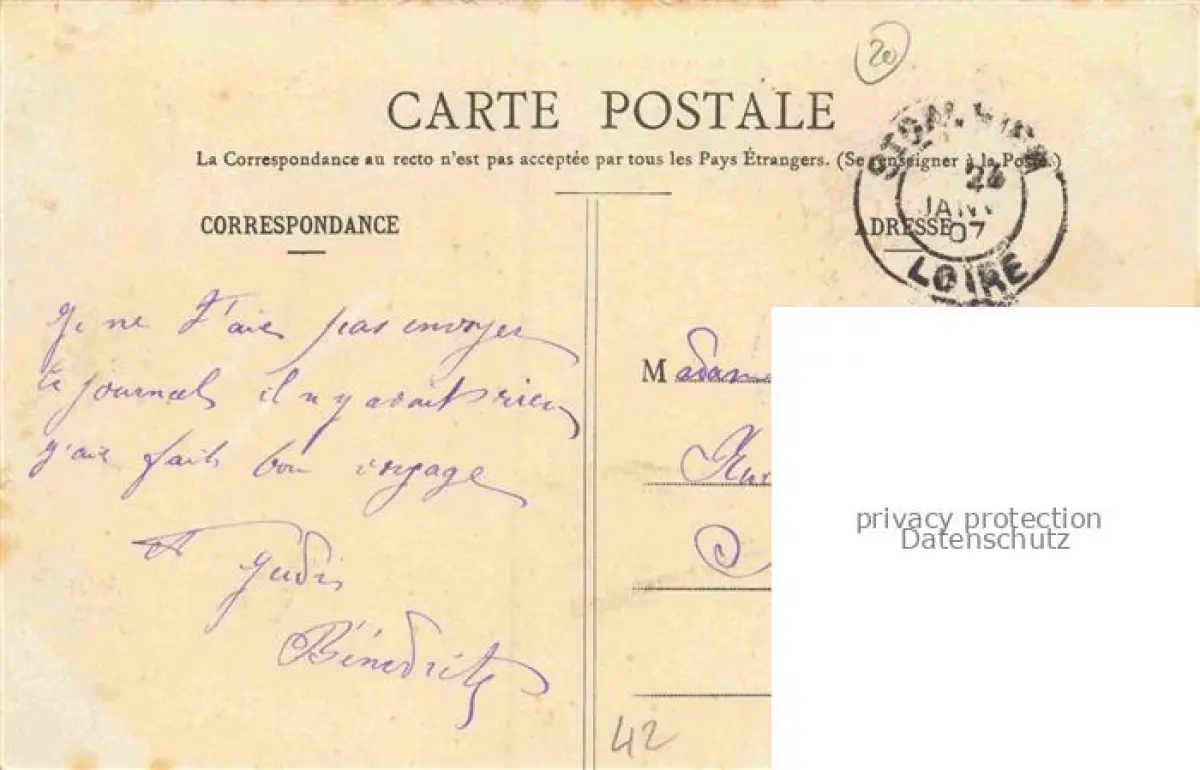 20
CARTE POSTALE
La Correspondance au recto n'est pas acceptée par tous les Pays Étrangers. (Se renseigner à la Poste.)
CORRESPONDANCE
ADRESSE
JANV
07
LOIRE
Je ne t'aie pas envoyer
le journal il n y avait rien
j'aie fait bon voyage
Madame
A Judi
Bénédict
42
privacy protection
Datenschutz